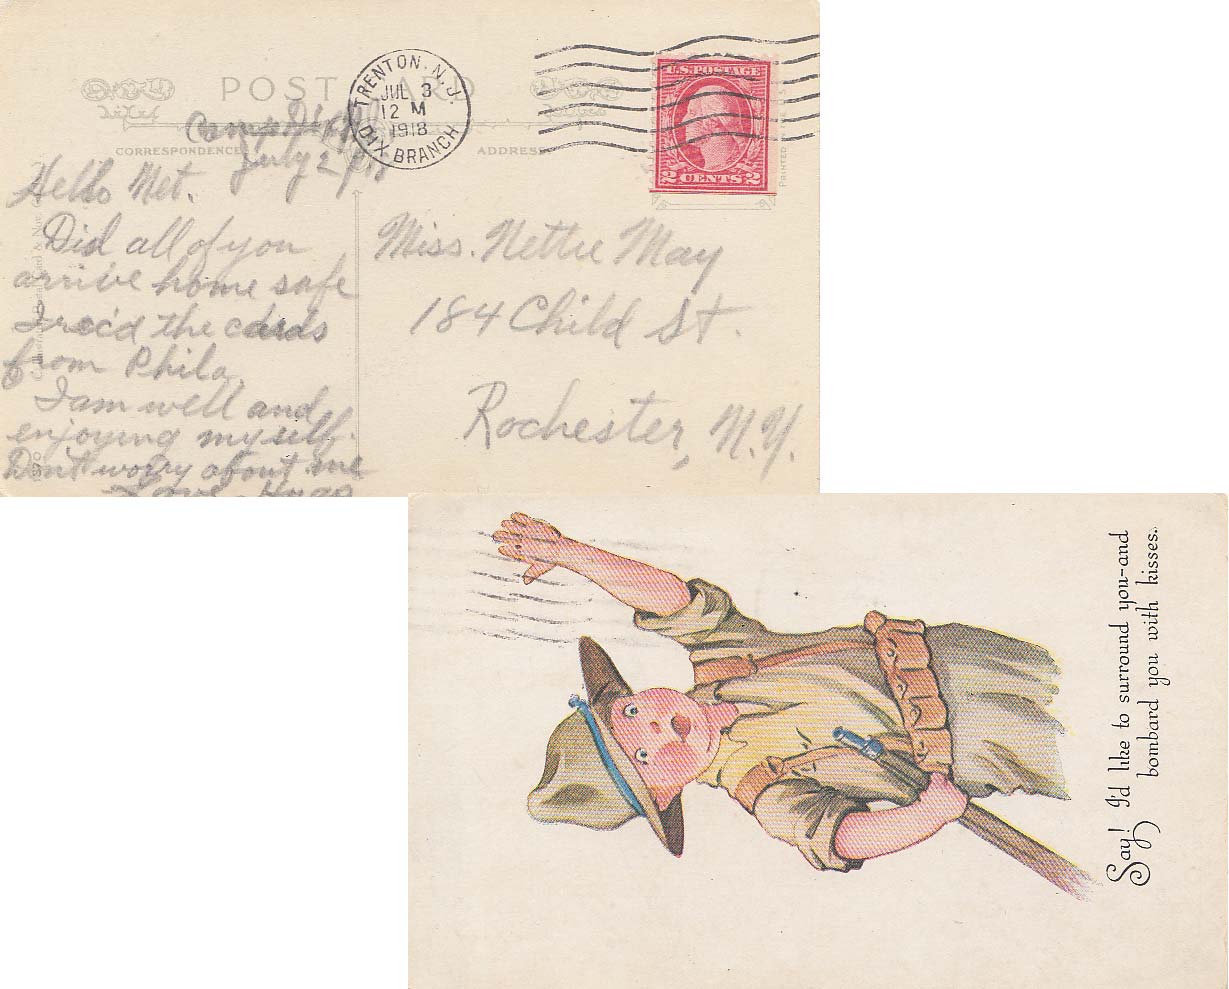 POST CARD
TRENTON. N. J.
JUL 3
12 M
1918
DIX BRANCH
U.S. POSTAGE
2 CENTS 2
CORRESPONDENCE
ADDRESS
PRINTED
Camp Dix
July 2
Hello Net.
Did all of you
arrive home safe
I rec'd the cards
from Phila.
I am well and
enjoying myself.
Dont worry about me
Love Hugo
Miss. Nettie May
184 Child St.
Rochester, N.Y.
Say! I'd like to surround you-and
bombard you with kisses.